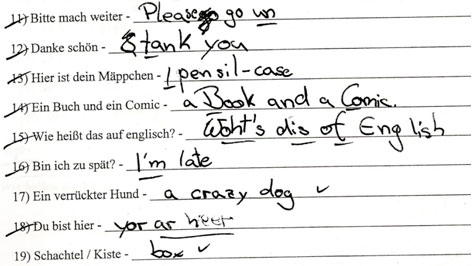 11) Bitte mach weiter - Please go un
12) Danke schön - tank you
13) Hier ist dein Mäppchen - 1 pensil-case
14) Ein Buch und ein Comic - a Book and a Comic.
15) Wie heißt das auf englisch? - Woht's dis of English
16) Bin ich zu spät? - I'm late
17) Ein verrückter Hund - a crazy dog ✓
18) Du bist hier - yor ar hier
19) Schachtel / Kiste - box ✓